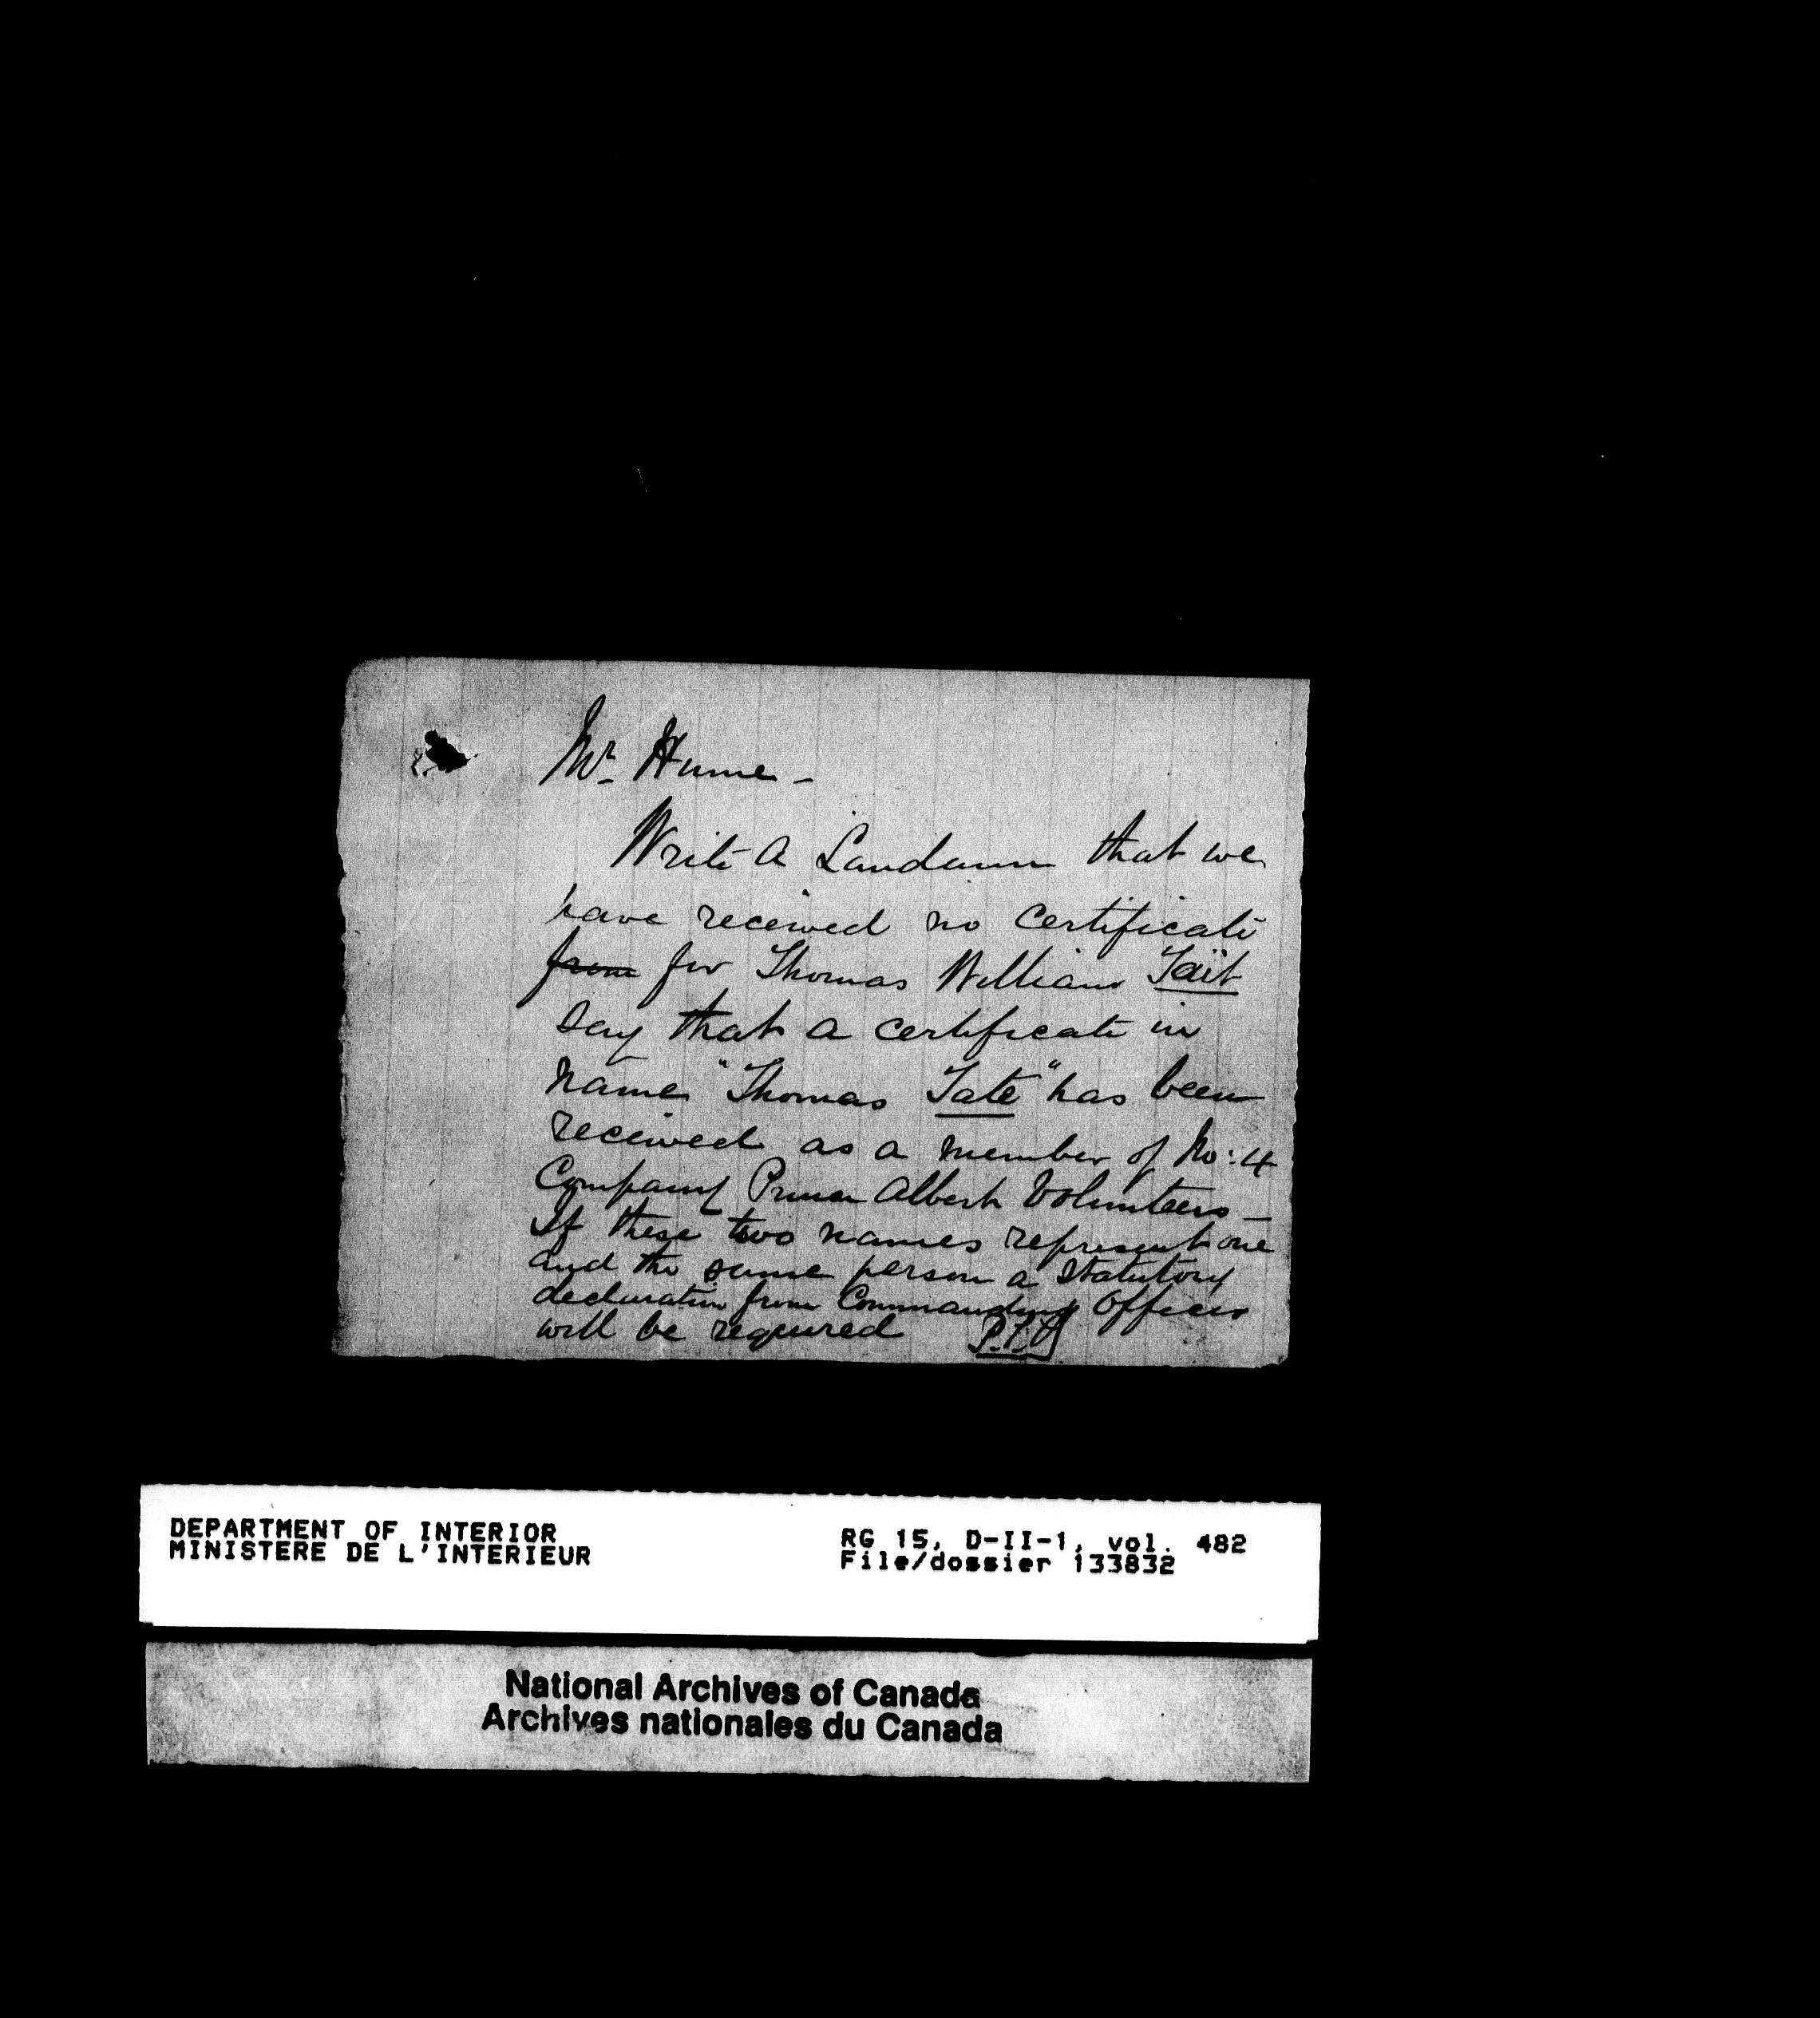 Mr. Hume -
Write A Landaum that we
have received no Certificate
from for Thomas William Tait
Say that a certificate in
name "Thomas Tate" has been
received as a member of No: 4
Company Prince Albert Volunteers -
If these two names represent one
and the same person a Statutory
declaration from Commanding Officer
will be required P.T.O
DEPARTMENT OF INTERIOR RG 15, D-II-1, vol. 482
MINISTERE DE L'INTERIEUR File/dossier 133832
National Archives of Canada
Archives nationales du Canada